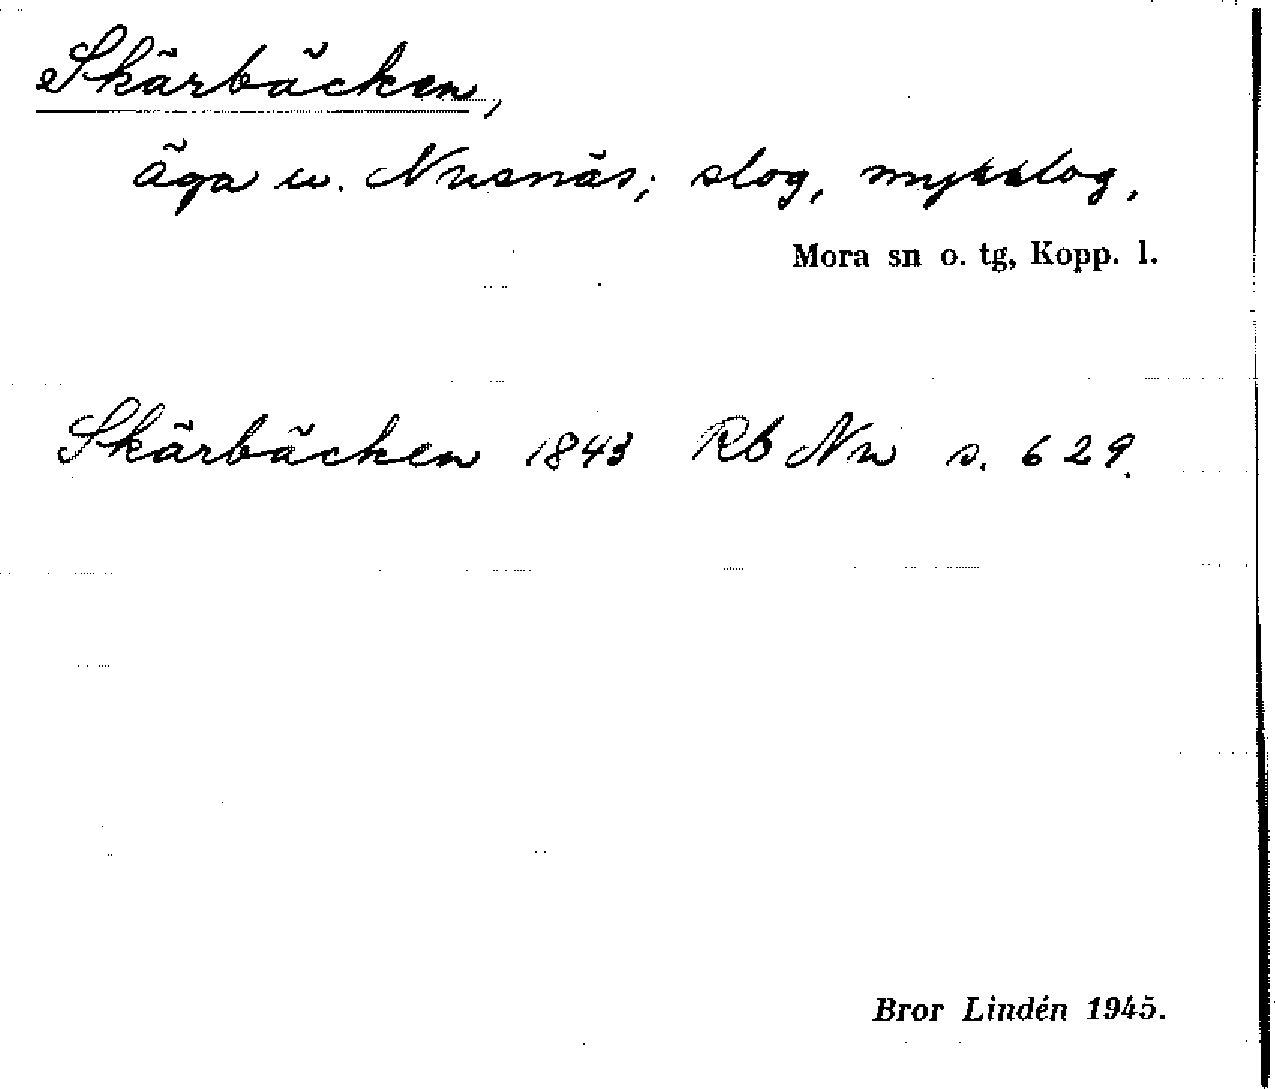 Skärbäcken,
äga u. Nusnäs; slog, myrslog.
Mora sn o. tg, Kopp. l.
Skärbäcken 1843 Rb Nu s. 629.
Bror Lindén 1945.